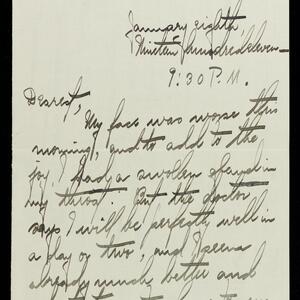 January eighth,
Nineteen hundred eleven—
9:30 P.M.
Dearest,
My face was worse this
morning, and to add to the
joy, had a swollen gland in
my throat. But the doctor
says I will be perfectly well in
a day or two, and I seem
already much better and